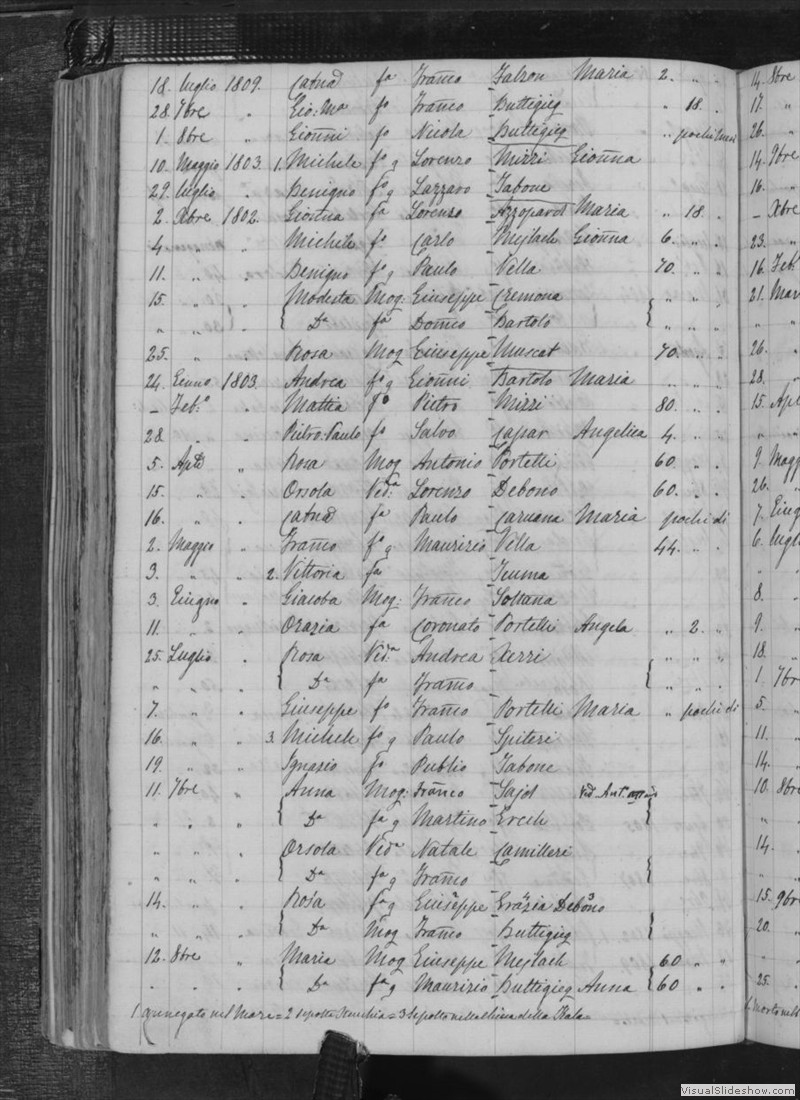 18. luglio 1809. Catna fa Franco Falzon Maria 2. " "
28. 7bre " Gio: Ma fo Franco Buttigieg " 18. "
1. 8bre " Gionni fo Nicola Buttigieg " pochi mesi
10. Maggio 1803. 1. Michele fo g Lorenzo Mizzi Gionna
29. luglio " Benigno fo g Lazzaro Tabone
2. Xbre 1802. Giostna fa Lorenzo Azzopardi Maria " 18. "
4. " " Michele fo Carlo Mejlach Gionna 6. " "
11. " " Benigno fo g Paulo Vella 70. " "
15. " " Modesta Mog: Giuseppe Cremona " " "
" " " Da fa Domco Bartolo " " "
25. " " Rosa Mog Giuseppe Muscat 70. " "
24. Genno 1803 Andrea fo g Gionni Bartolo Maria " " "
– Febo " Mattia fo Pietro Mizzi 80. " "
28. " " Pietro Paulo fo Salvo Caspar Angelica 4. " "
5. Aple " Rosa Mog Antonio Portelli 60. " "
15. " " Orsola Veda Lorenzo Debono 60. " "
16. " " Catna fa Paulo Caruana Maria pochi di
2. Maggio " Franco fo g Maurizio Vella 44. " "
3. " " 2. Vittoria fa
3. Giugno " Giacoba Mog: Franco Soltana
11. " " Orazia fa Coronato Portelli Angela " 2. "
25. Luglio " Rosa Veda Andrea Xerri
" " " Da fa Franco " " "
7. " " Giuseppe fo Franco Portelli Maria " pochi di
16. " " 3. Michele fo g Paulo Spiteri
19. " " Ignazio fo Publio Tabone
11. 7bre " Anna Mog: Franco Sajd Ved. Anto
" " " Da fa g Martino Ercili
" " " Orsola Veda Natale Camilleri
" " " Da fa g Franco
14. " " Rosa fa g Giuseppe Grazia Debono
" " " Da Mog Franco Buttigieg
12. 8bre " Maria Mog Giuseppe Mejlach 60 " "
" " " Da fa g Maurizio Buttigieg Anna 60 " "
1 Annegato nel Mare = 2 sepolto = 3 Sepolto nella chiesa della Kala =
14. 8bre
17. "
26. "
14. 9bre
16. "
– Xbre
23. "
16. Feb.
21. Mar
" "
26. "
28. "
15. Apl
" "
9. Magg
26. "
7. Giug
6. lugl
" "
8. "
9. "
18. "
1. 7br
5. "
11. "
14. "
10. 8bre
" "
14. "
" "
15. 9bre
20. "
" "
25. "
VisualSlideshow.com